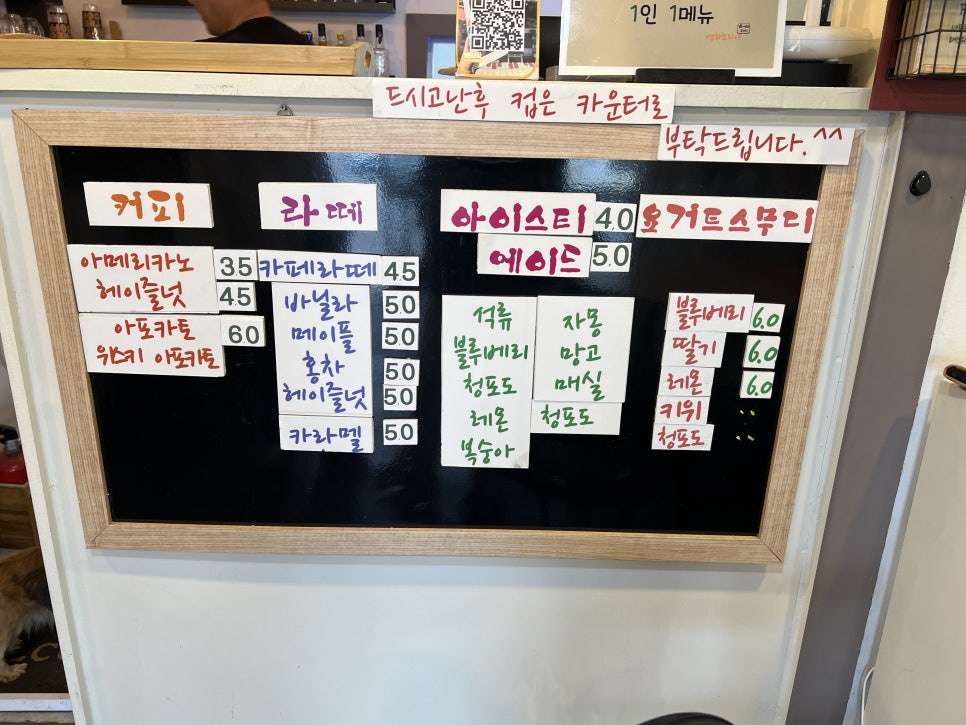 1인 1메뉴
드시고난후 컵은 카운터로
부탁드립니다.^^
커피
아메리카노 3.5
헤이즐넛 4.5
아포카토 6.0
위스키 아포카토
라떼
카페라떼 4.5
바닐라 5.0
메이플 5.0
홍차 5.0
헤이즐넛 5.0
카라멜 5.0
아이스티 4.0
에이드 5.0
석류
블루베리
청포도
레몬
복숭아
자몽
망고
매실
청포도
요거트스무디
블루베리 6.0
딸기 6.0
레몬 6.0
키위
청포도